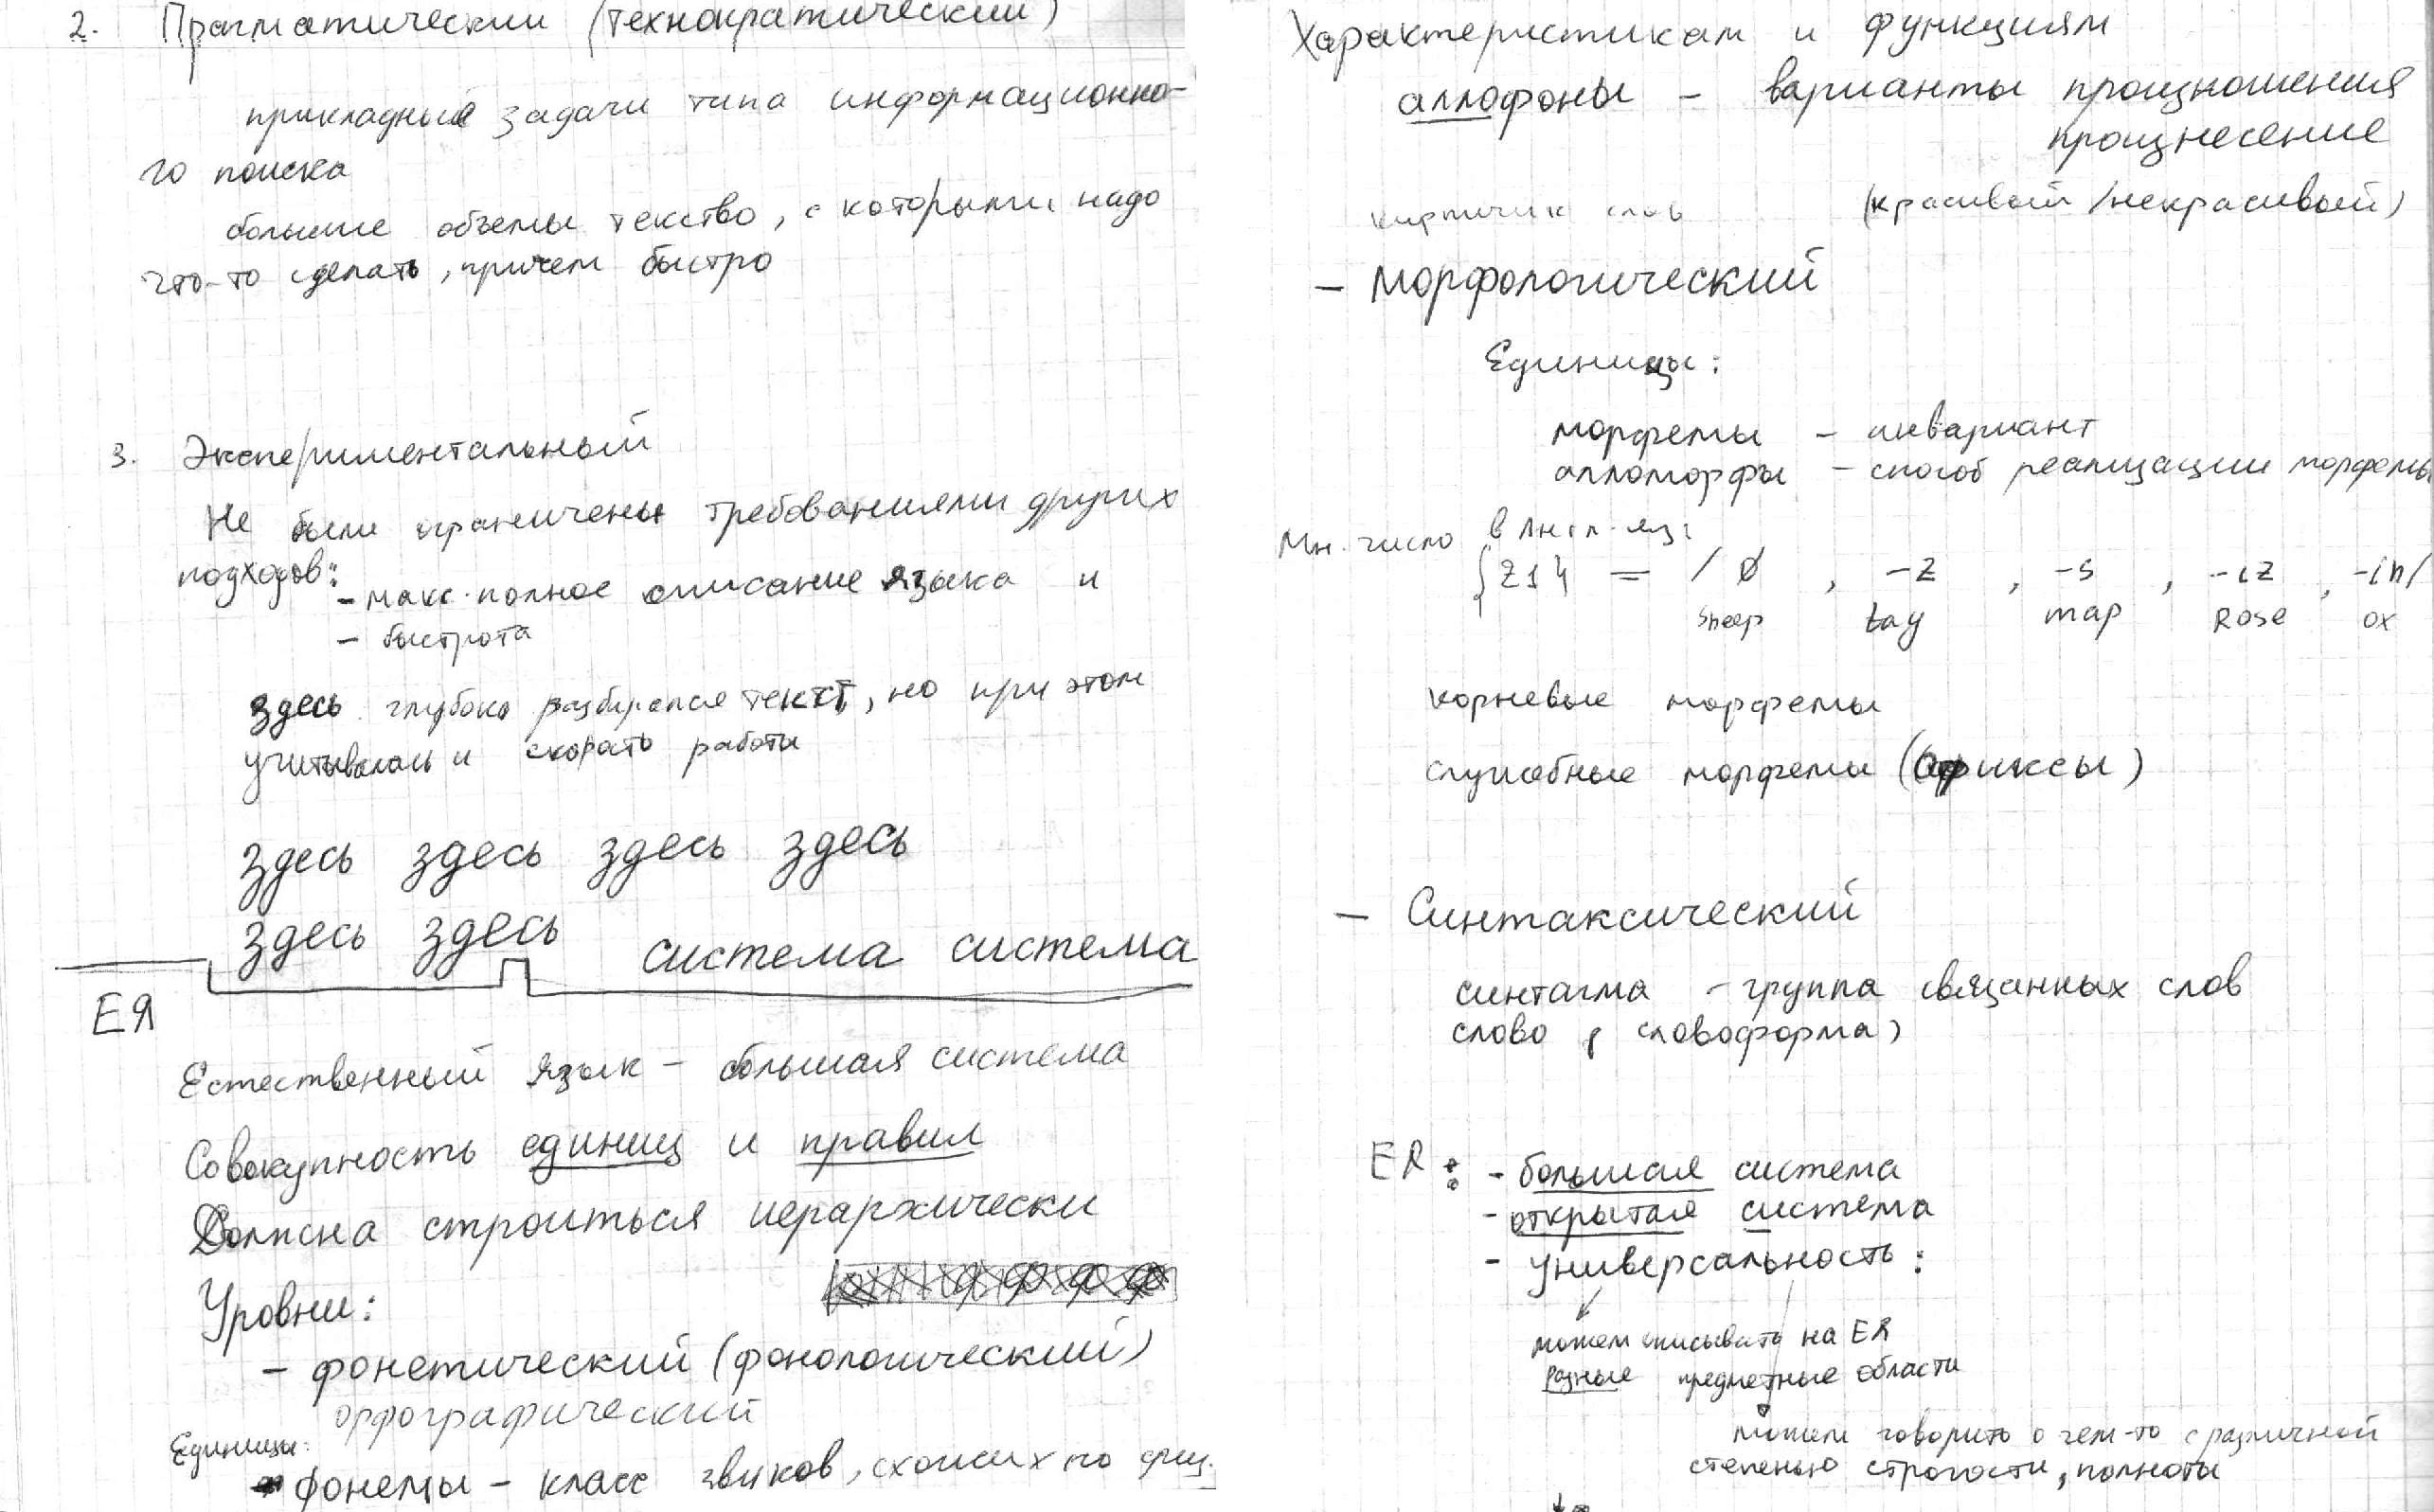 2. Прагматический (технократический)
прикладные задачи типа информационно-
го поиска
большие объемы текство, с которыми надо
что-то сделать, причем быстро
3. Экспериментальный
Не были ограничены требованиями других
подходов:
- макс. полное описание языка и
- быстрота
здесь глубоко разбирался текст, но при этом
учитывалась и скорать работы
здесь здесь здесь здесь
здесь здесь система система
ЕЯ
Естественный язык - большая система
Совокупность единиц и правил
Должна строиться иерархически
Уровни:
- фонетический (фонологический)
орфографический
Единицы:
фонемы - класс звуков, схожих по физ.
характеристикам и функциям
аллофоны - варианты произношения
произнесение
кирпичик слов (красивый/некрасивый)
- Морфологический
Единицы:
морфемы - инвариант
алломорфы - способ реализации морфемы
Мн. число в Англ. яз:
{Z1} = / ø , -z , -s , -iz , -in/
sheep bay map Rose ox
корневые морфемы
служебные морфемы (афиксы)
- Синтаксический
синтагма - группа связанных слов
слово (словоформа)
ЕЯ: - большая система
- открытая система
- универсальность:
можем описывать на ЕЯ
разные предметные области
можем говорить о чем-то с различной
степенью строгости, полноты